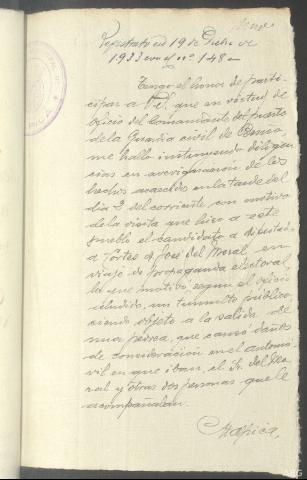 Registrado en 19 de Dicbre de
1933 con el nº 148=
Tengo el honor de parti-
cipar a V.E. que en virtud de
oficio del Comandante del puesto
de la Guardia civil de
me hallo instruyendo diligen-
cias en averiguación de los
hechos acaecidos en la tarde del
día 2 del corriente, con motivo
de la visita que hizo a este
pueblo el candidato a diputado
a Cortes D. José del Moral, en
viaje de propaganda electoral,
lo que motivó segun el oficio
aludido, un tumulto público,
siendo objeto a la salida de
una pedrea, que causó daños
de consideración en el automo-
vil en que iban, el Sr. del Mo-
ral y otras dos personas que le
acompañaban.